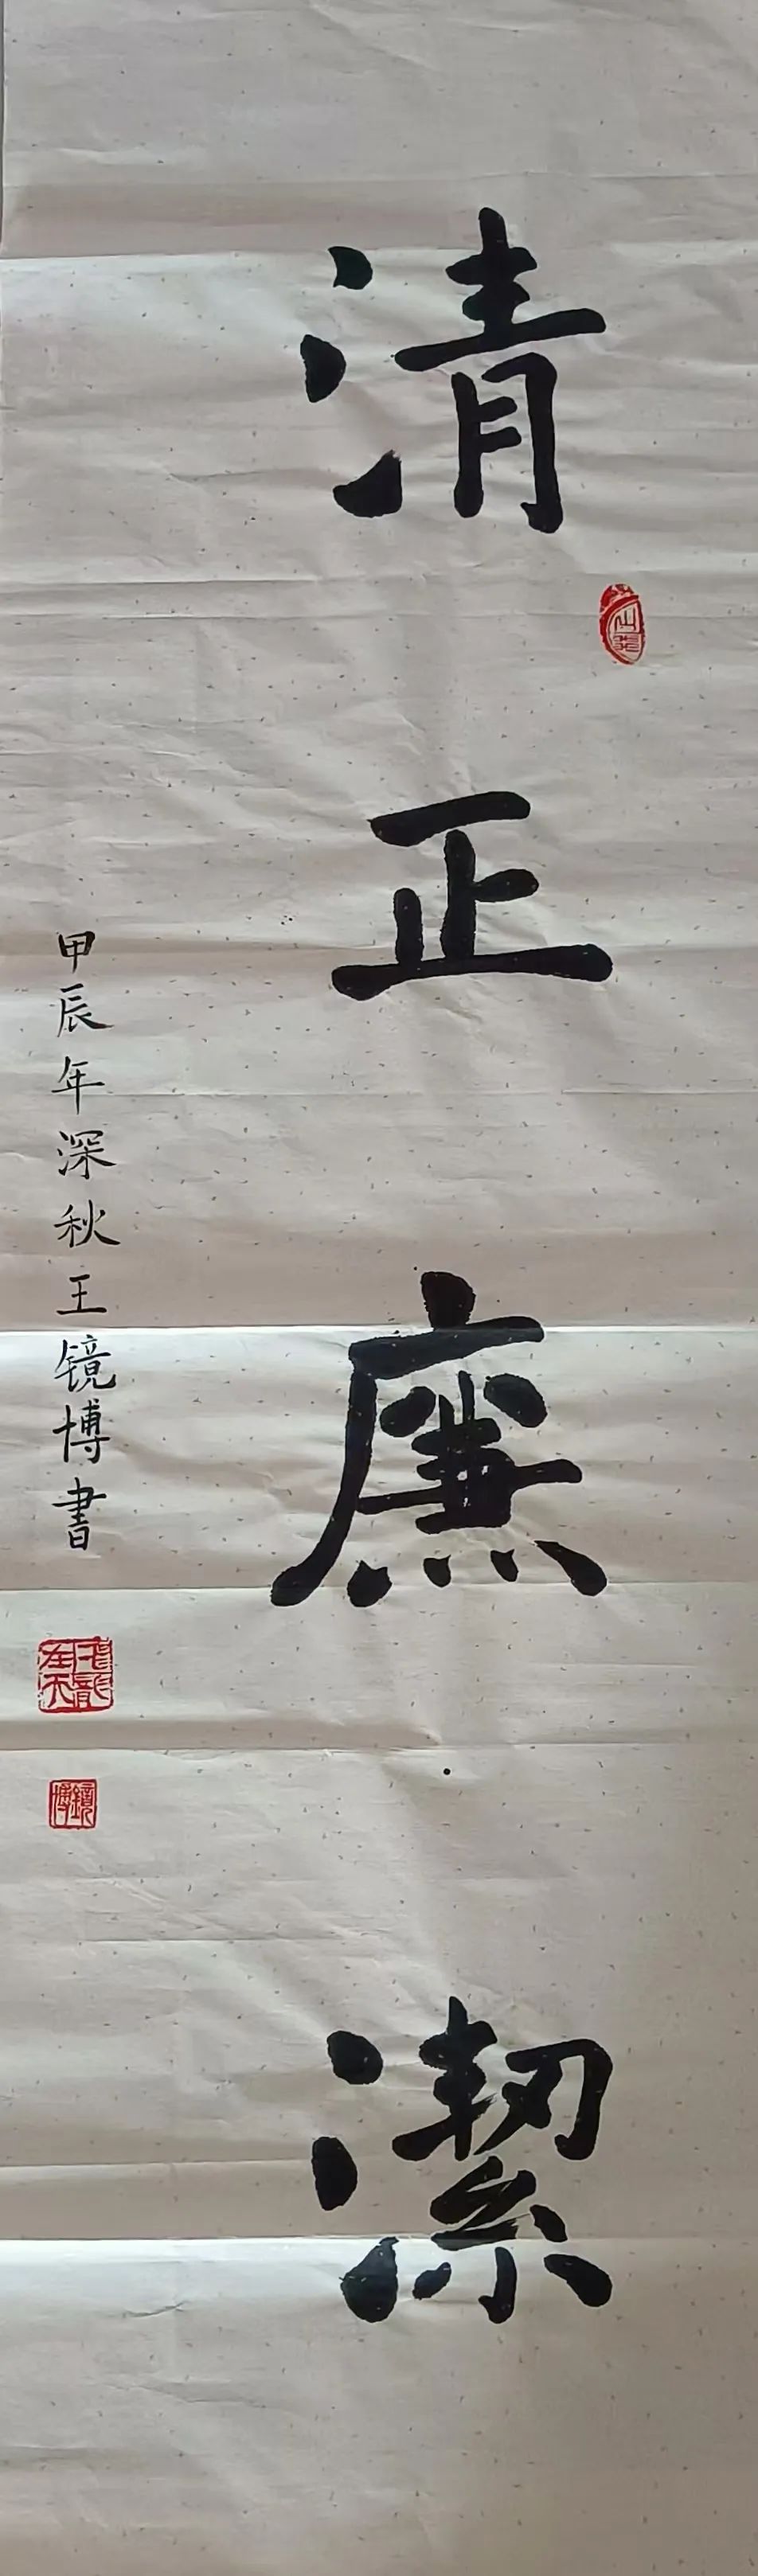 清正廉潔
甲辰年深秋王镜博書
鏡博